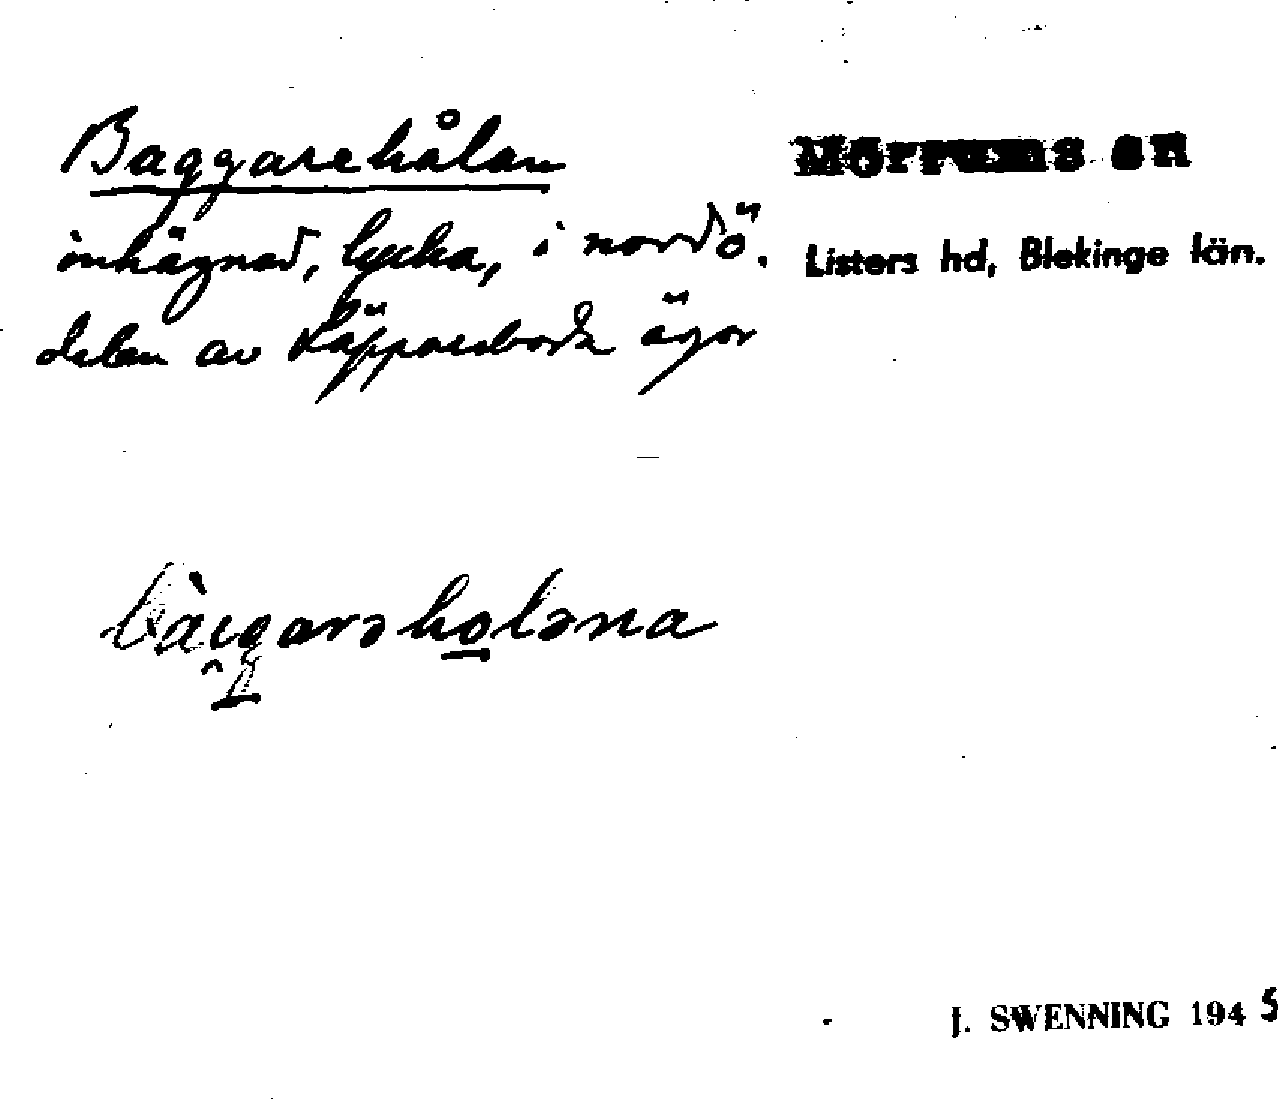 Baggarehålan
Mörrums sn
inhägnad, lycka, i nordö.
Listers hd, Blekinge län.
delen av Käppareboda ägor
J. SWENNING 1945